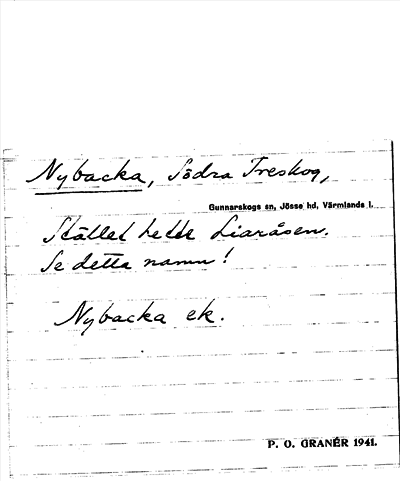 Nybacka, Södra Treskog,
Gunnarskogs sn, Jösse hd, Värmlands l.
Stället hette Liaråsen.
Se detta namn!
Nybacka ek.
P. O. GRANÉR 1941.